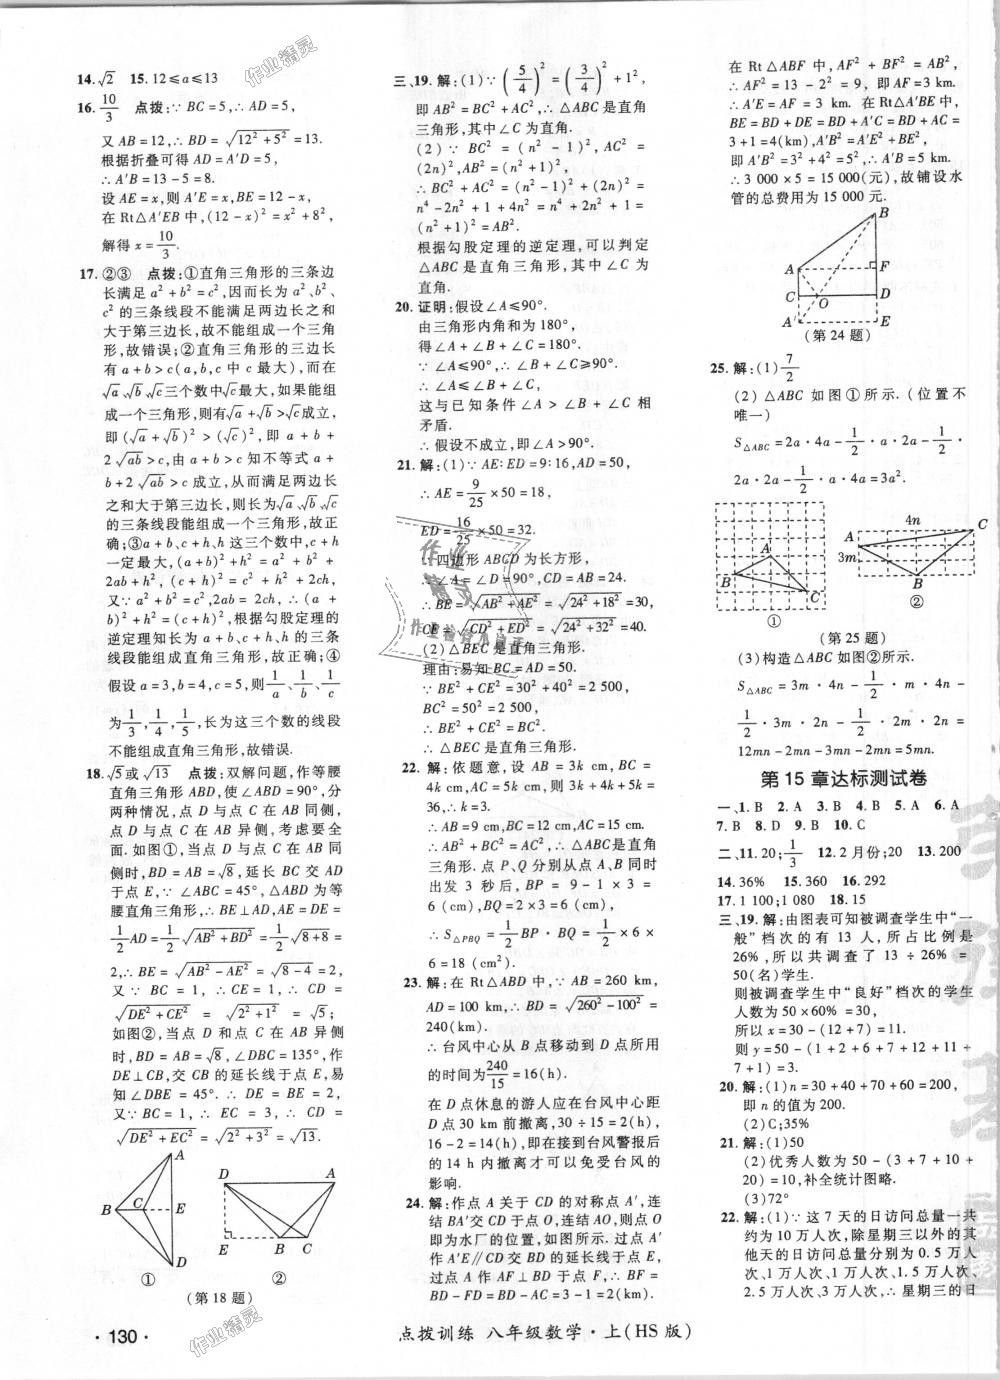 14.√2　15.12≤a≤13
16.10/3　点拨:∵BC=5,∴AD=5,
又AB=12,∴BD=√(12²+5²)=13.
根据折叠可得AD=A′D=5,
∴A′B=13-5=8.
设AE=x,则A′E=x,BE=12-x,
在Rt△A′EB中,(12-x)²=x²+8²,
解得x=10/3.
17.②③　点拨:①直角三角形的三条边
长满足a²+b²=c²,因而长为a²、b²、
c²的三条线段不能满足两边长之和
大于第三边长,故不能组成一个三角
形,故错误;②直角三角形的三边长
有a+b>c(a,b,c中c最大),而在
√a、√b、√c三个数中√c最大,如果能组
成一个三角形,则有√a+√b>√c成立,
即(√a+√b)²>(√c)²,即a+b+
2√ab>c,由a+b>c知不等式a+
b+2√ab>c成立,从而满足两边长
之和大于第三边长,则长为√a、√b、√c的
三条线段能组成一个三角形,故正
确;③a+b、c+h、h这三个数中,c+h
一定最大,(a+b)²+h²=a²+b²+
2ab+h²,(c+h)²=c²+h²+2ch,
又∵a²+b²=c²,2ab=2ch,∴(a+
b)²+h²=(c+h)²,根据勾股定理的
逆定理知长为a+b、c+h、h的三条
线段能组成直角三角形,故正确;④
假设a=3,b=4,c=5,则1/a、1/b、1/c分别
为1/3、1/4、1/5,长为这三个数的线段
不能组成直角三角形,故错误.
18.√5或√13　点拨:双解问题,作等腰
直角三角形ABD,使∠ABD=90°,分
两种情况,点D与点C在AB同侧,
点D与点C在AB异侧,考虑要全
面.如图①,当点D与点C在AB同
侧时,BD=AB=2√2,延长BC交AD
于点E,∵∠ABC=45°,△ABD为等
腰直角三角形,∴BE⊥AD,AE=DE=
1/2AD=1/2√(AB²+BD²)=1/2√(8+8)=
2,∴BE=√(AB²-AE²)=√(8-4)=2,
又∵BC=1,∴CE=1,∴CD=
√(DE²+CE²)=√(2²+1²)=√5;
如图②,当点D和点C在AB异侧
时,BD=AB=√8,∠DBC=135°,作
DE⊥CB,交CB的延长线于点E,则
∠DBE=45°.∴DE=BE=2,
又∵BC=1,∴EC=3,∴CD=
√(DE²+EC²)=√(2²+3²)=√13.
A
B
C
E
D
①
D
A
E
B
C
②
(第18题)
三、19.解:(1)∵(5/4)²=(3/4)²+1²,
即AB²=BC²+AC²,∴△ABC是直角
三角形,其中∠C为直角.
(2)∵BC²=(n²-1)²,AC²=
(2n)²,AB²=(n²+1)²,
∴BC²+AC²=(n²-1)²+(2n)²=
n⁴-2n²+1+4n²=n⁴+2n²+1=
(n²+1)²=AB².
根据勾股定理的逆定理,可以判定
△ABC是直角三角形,其中∠C为
直角.
20.证明:假设∠A≤90°.
由三角形内角和为180°,
得∠A+∠B+∠C=180°.
∵∠A≤90°,∴∠B+∠C≥90°.
∴∠A≤∠B+∠C.
这与已知条件∠A>∠B+∠C相
矛盾.
∴假设不成立,即∠A>90°.
21.解:(1)∵AE:ED=9:16,AD=50,
∴AE=9/25×50=18,
ED=16/25×50=32.
∵四边形ABCD为长方形,
∴∠A=∠D=90°,CD=AB=24.
∴BE=√(AB²+AE²)=√(24²+18²)=30,
CE=√(CD²+ED²)=√(24²+32²)=40.
(2)△BEC是直角三角形.
理由:易知BC=AD=50.
∵BE²+CE²=30²+40²=2 500,
BC²=50²=2 500,
∴BE²+CE²=BC².
∴△BEC是直角三角形.
22.解:依题意,设AB=3k cm,BC=
4k cm,AC=5k cm,则3k+4k+5k=
36,∴k=3.
∴AB=9 cm,BC=12 cm,AC=15 cm.
∵AB²+BC²=AC²,∴△ABC是直角
三角形.点P、Q分别从点A、B同时
出发3秒后,BP=9-1×3=6
(cm),BQ=2×3=6(cm),
∴S△PBQ=1/2BP·BQ=1/2×6
×6=18(cm²).
23.解:在Rt△ABD中,∵AB=260 km,
AD=100 km,∴BD=√(260²-100²)=
240(km).
∴台风中心从B点移动到D点所用
的时间为240/15=16(h).
在D点休息的游人应在台风中心距
D点30 km前撤离,30÷15=2(h),
16-2=14(h),即在接到台风警报后
的14 h内撤离才可以免受台风的
影响.
24.解:作点A关于CD的对称点A′,连
结BA′交CD于点O,连结AO,则点O
即为水厂的位置,如图.过点A′
作A′E∥CD交BD的延长线于点E,
过点A作AF⊥BD于点F,则DF=
BD-FD=BD-AC=3-1=2(km).
在Rt△ABF中,AF²+BF²=AB²,
∴AF²=13-2²=9,即AF=3 km.
∴A′E=AF=3 km.在Rt△A′BE中,
BE=BD+DE=BD+A′C=BD+AC=
3+1=4(km),A′B²=A′E²+BE²,
即A′B²=3²+4²=5²,∴A′B=5 km.
∴3 000×5=15 000(元),故铺设水
管的总费用为15 000元.
B
A
F
C
O
D
A′
E
(第24题)
25.解:(1)7/2
(2)△ABC如图①所示.(位置不
唯一)
S△ABC=2a·4a-1/2·a·2a-1/2·
2a·2a-1/2·a·4a=3a².
A
B
C
①
4n
C
A
3m
B
②
(第25题)
(3)构造△ABC如图②所示.
S△ABC=3m·4n-1/2·m·4n-
1/2·3m·2n-1/2·2m·2n=
12mn-2mn-3mn-2mn=5mn.
第15章达标测试卷
一、1.B　2.A　3.B　4.B　5.A　6.A
7.B　8.D　9.B　10.C
二、11.20;1/3　12.2月份;20　13.200
14.36%　15.360　16.292
17.1 100;1 080　18.15
三、19.解:由图表可知被调查学生中“一
般”档次的有13人,所占比例是
26%,所以共调查了13÷26%=
50(名)学生.
则被调查学生中“良好”档次的学生
人数为50×60%=30,
所以x=30-(12+7)=11.
则y=50-(1+2+6+7+12+11+
7+1)=3.
20.解:(1)n=30+40+70+60=200,
即n的值为200.
(2)C;35%
21.解:(1)50
(2)优秀人数为50-(3+7+10+
20)=10,补全统计图略.
(3)72°
22.解:(1)∵这7天的日访问总量一共
约为10万人次,除星期三以外的其
他天的日访问总量分别为0.5万人
次、1万人次、1万人次、1.5万人次、
2.5万人次、3万人次,∴星期三的日
·130·
点拨训练 八年级数学·上(HS版)
作业精灵
作业精灵
作业精灵